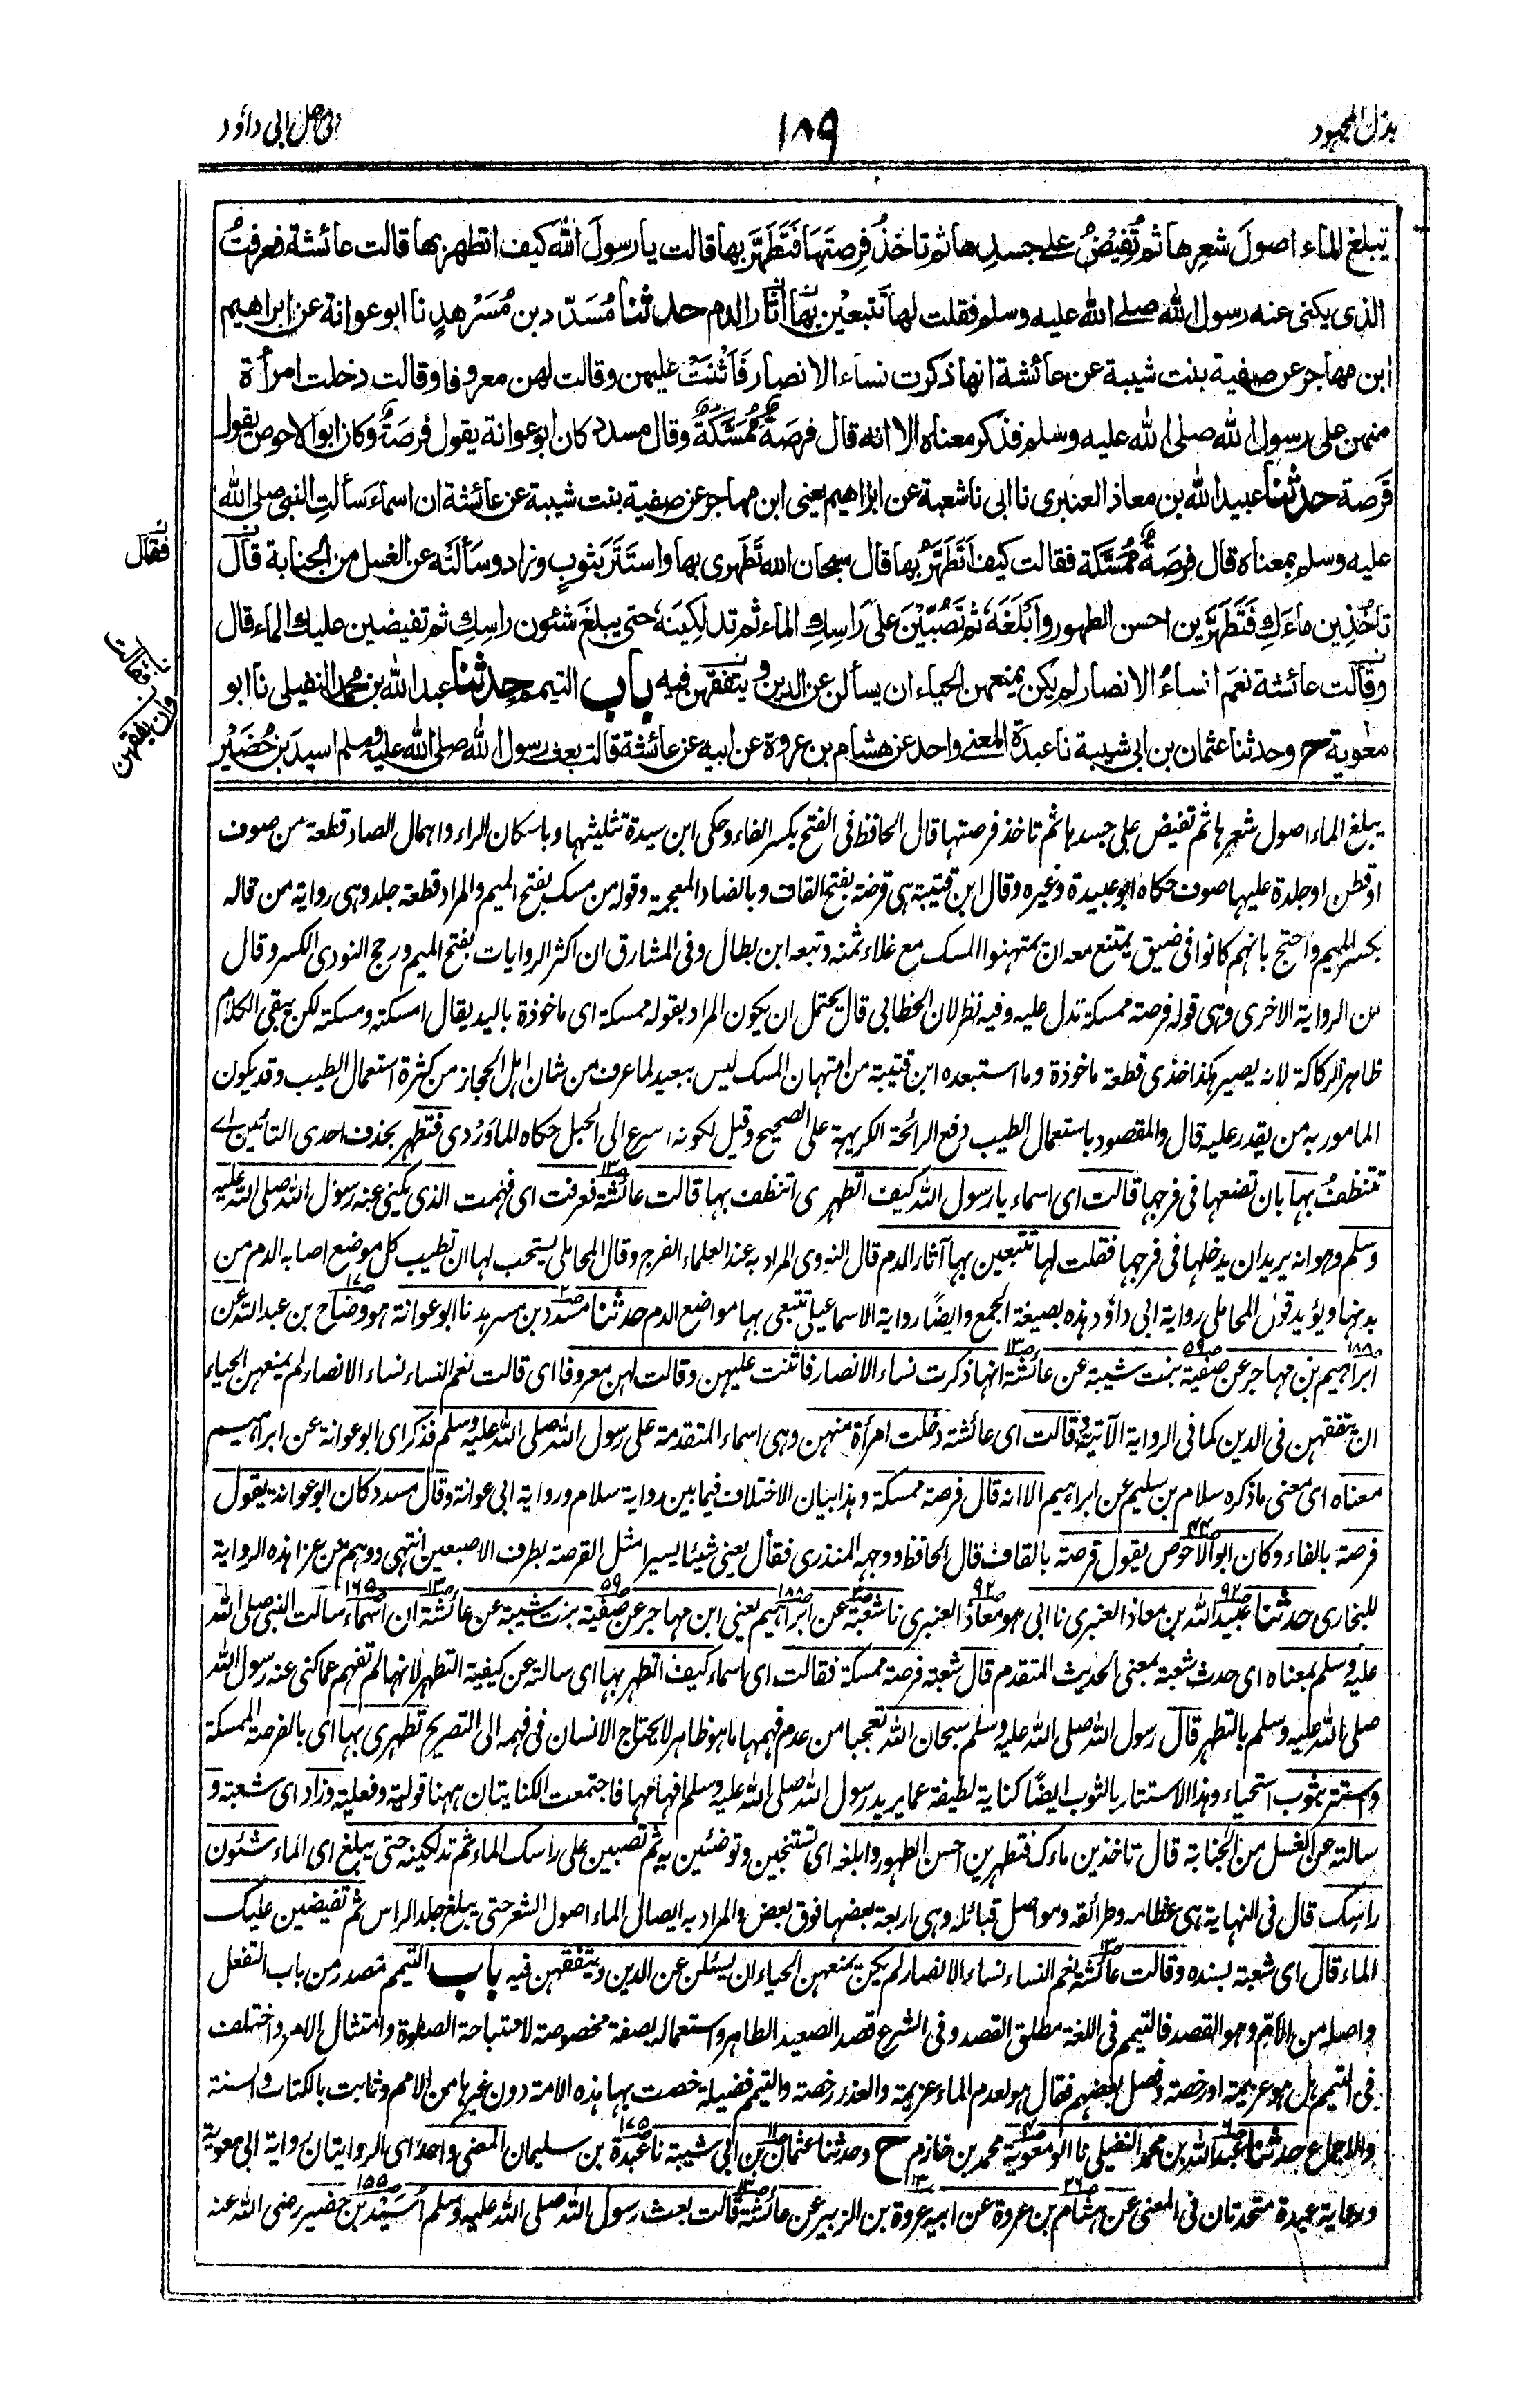 بذل المجهود
١٨٩
فى حل ابى داؤد
تبلغ الماء اصولَ شعرِها ثم تُفيضُ على جسدِها ثم تاخذُ فِرصتَها فَتَطَهَّرَ بها قالت يا رسولَ الله كيف اتطهر بها قالت عائشة فعرفتُ
الذى يكنى عنه رسول الله صلے الله عليه وسلم فقلت لها تتبعين بها آثار الدم حدثنا مُسَدّد بن مُسَرْهدٍ نا ابو عوانة عن ابراهيم
ابن مهاجر عن صفية بنت شيبة عن عائشة انها ذكرت نساء الانصار فَاَثْنَتْ عليهن وقالت لهن معروفا وقالت دخلت امرأة
منهن على رسول الله صلى الله عليه وسلم فذكر معناه الا انه قال فرصةً مُمَسَّكَةً وقال مسدد كان ابو عوانة يقول فُرصَةً وكان ابو الاحوص يقول
قَرصة حدثنا عبيد الله بن معاذ العنبرى نا ابى نا شعبة عن ابراهيم يعنى ابن مهاجر عن صفية بنت شيبة عن عائشة ان اسماءَ سألتِ النبى صلى الله
عليه وسلم بمعناه قال فِرصَةً مُمَسَّكة فقالت كيف اَتَطَهَّرُ بها قال سبحان الله تَطَهَّرى بها واستَتَرَ بثوبٍ وزاد وسَألَتْه عن الغسل من الجنابة قال
تاخُذِين ماءَكِ فَتَطَهَّرِين احسن الطهور وأبلَغَه ثم تَصُبِّيْنَ على رَاسِكِ الماء ثم تدلِكِينَه حتى يبلغَ شئون راسِكِ ثم تفيضين عليك الماء قال
وقالت عائشة نعم النساءُ نساءُ الانصار لم يكن يمنعهن الحياء ان يسألن عن الدين و يتفقهن فيه باب التيمم حدثنا عبد الله بن محمد النفيلى نا ابو
معٰوية ح وحدثنا عثمان بن ابى شيبة نا عبدة المعنى واحد عن هشام بن عروة عن ابيه عن عائشة قالت بعث رسول الله صلى الله عليه وسلم اسيد بن حُضَيْر
فقال
فقالت
وان يتفقهن
يبلغ الماء اصول شعرها ثم تفيض على جسدها ثم تاخذ فرصتها قال الحافظ فى الفتح بكسر الفاء وحكى ابن سيدة تثليثها وباسكان الراء واهمال الصاد قطعة من صوف
او قطن او جلدة عليها صوف حكاه ابو عبيدة وغيره وقال ابن قتيبة هى قرضة بفتح القاف وبالضاد المعجمة وقوله من مسك بفتح الميم والمراد قطعة جلد وهى رواية من قاله
بكسر الميم واحتج بانهم كانوا فى ضيق يمتنع معه ان يمتهنوا المسك مع غلاء ثمنه وتبعه ابن بطال وفى المشارق ان اكثر الروايات بفتح الميم ورجح النووى الكسر وقال
من الرواية الاخرى وهى قوله فرصة ممسكة تدل عليه وفيه نظر لان الخطابى قال يحتمل ان يكون المراد بقوله ممسكة اى ماخوذة باليد يقال امسكته ومسكته لكن يبقى الكلام
ظاهر الركاكة لانه يصير هكذا خذى قطعة ماخوذة وما استبعده ابن قتيبة من امتهان المسك ليس ببعيد لما عرف من شان اهل الحجاز من كثرة استعمال الطيب وقد يكون
المامور به من يقدر عليه قال والمقصود باستعمال الطيب دفع الرائحة الكريهة على الصحيح وقيل لكونه اسرع الى الحبل حكاه الماوردى فتطهر بحذف احدى التائين اے
تتنظف بها بان تضعها فى فرجها قالت اى اسماء يا رسول الله كيف اتطهر ى اتنظف بها قالت عائشة فعرفت اى فهمت الذى يكنى عنه رسول الله صلى الله عليه
وسلم وهو انه يريد ان يدخلها فى فرجها فقلت لها تتبعين بها آثار الدم قال النووى المراد به عند العلماء الفرج وقال المحاملى يستحب لها ان تطيب كل موضع اصابه الدم من
بدنها ويؤيد قول المحاملى رواية ابى داؤد هذه بصيغة الجمع وايضًا رواية الاسماعيلى تتبعى بها مواضع الدم حدثنا مسدد بن مسرهد نا ابو عوانة هو وضاح بن عبد الله عن
ابراهيم بن مهاجر عن صفية بنت شيبة عن عائشة انها ذكرت نساء الانصار فاثنت عليهن وقالت لهن معروفا اى قالت نعم النساء نساء الانصار لم يمنعهن الحياء
ان يتفقهن فى الدين كما فى الرواية الآتية وقالت اى عائشة دخلت امرأة منهن وهى اسماء المتقدمة على رسول الله صلى الله عليه وسلم فذكر اى ابو عوانة عن ابراهيم
معناه اى معنى ما ذكره سلام بن سليم عن ابراهيم الا انه قال فرصة ممسكة وهذا بيان الاختلاف فيما بين رواية سلام ورواية ابى عوانة وقال مسدد كان ابو عوانة يقول
فرصة بالفاء وكان ابو الاحوص يقول قرصة بالقاف قال الحافظ ووجهه المنذرى فقال يعنى شيئا يسيرا مثل القرصة بطرف الاصبعين انتهى ووهم من عزا هذه الرواية
للبخارى حدثنا عبيد الله بن معاذ العنبرى نا ابى هو معاذ العنبرى نا شعبة عن ابراهيم يعنى ابن مهاجر عن صفية بنت شيبة عن عائشة ان اسماء سالت النبى صلى الله
عليه وسلم بمعناه اى حدث شعبة بمعنى الحديث المتقدم قال شعبة فرصة ممسكة فقالت اى اسماء كيف اتطهر بها اى سالته عن كيفية التطهر لانها لم تفهم عما كنى عنه رسول الله
صلى الله عليه وسلم بالتطهر قال رسول الله صلى الله عليه وسلم سبحان الله تعجبا من عدم فهمها ما هو ظاهر لا يحتاج الانسان فى فهمه الى التصريح تطهرى بها اى بالفرصة الممسكة
واستتر بثوب استحياء وهذا الاستتار بالثوب ايضًا كناية لطيفة عما يريد رسول الله صلى الله عليه وسلم افهامها فاجتمعت الكنايتان ههنا قولية وفعلية وزاد اى شعبة و
سالته عن الغسل من الجنابة قال تاخذين ماءك فتطهرين احسن الطهور وابلغه اى تستنجين وتوضئين به ثم تصبين على راسك الماء ثم تدلكينه حتى يبلغ اى الماء شئون
راسك قال فى النهاية هى عظامه وطرائقه ومواصل قبائله وهى اربعة بعضها فوق بعض والمراد به ايصال الماء اصول الشعر حتى يبلغ جلد الراس ثم تفيضين عليك
الماء قال اى شعبة بسنده وقالت عائشة نعم النساء نساء الانصار لم يكن يمنعهن الحياء ان يسئلن عن الدين ويتفقهن فيه باب التيمم مصدر من باب التفعل
واصله من الامّ وهو القصد فالتيمم فى اللغة مطلق القصد وفى الشرع قصد الصعيد الطاهر واستعماله بصفة مخصوصة لاستباحة الصلوة وامتثال الامر واختلف
فى التيمم هل هو عزيمة او رخصة وفصل بعضهم فقال هو لعدم الماء عزيمة والعذر رخصة والتيمم فضيلة خصت بها هذه الامة دون غيرها من الامم وثابت بالكتاب والسنة
والاجماع حدثنا عبد الله بن محمد النفيلى نا ابو معوية محمد بن خازم ح وحدثنا عثمان بن ابى شيبة نا عبدة بن سليمان المعنى واحد اى الروايتان رواية ابى معوية
ورواية عبدة متحدتان فى المعنى عن هشام بن عروة عن ابيه عروة بن الزبير عن عائشة قالت بعث رسول الله صلى الله عليه وسلم اُسَيْد بن حضير رضى الله عنه